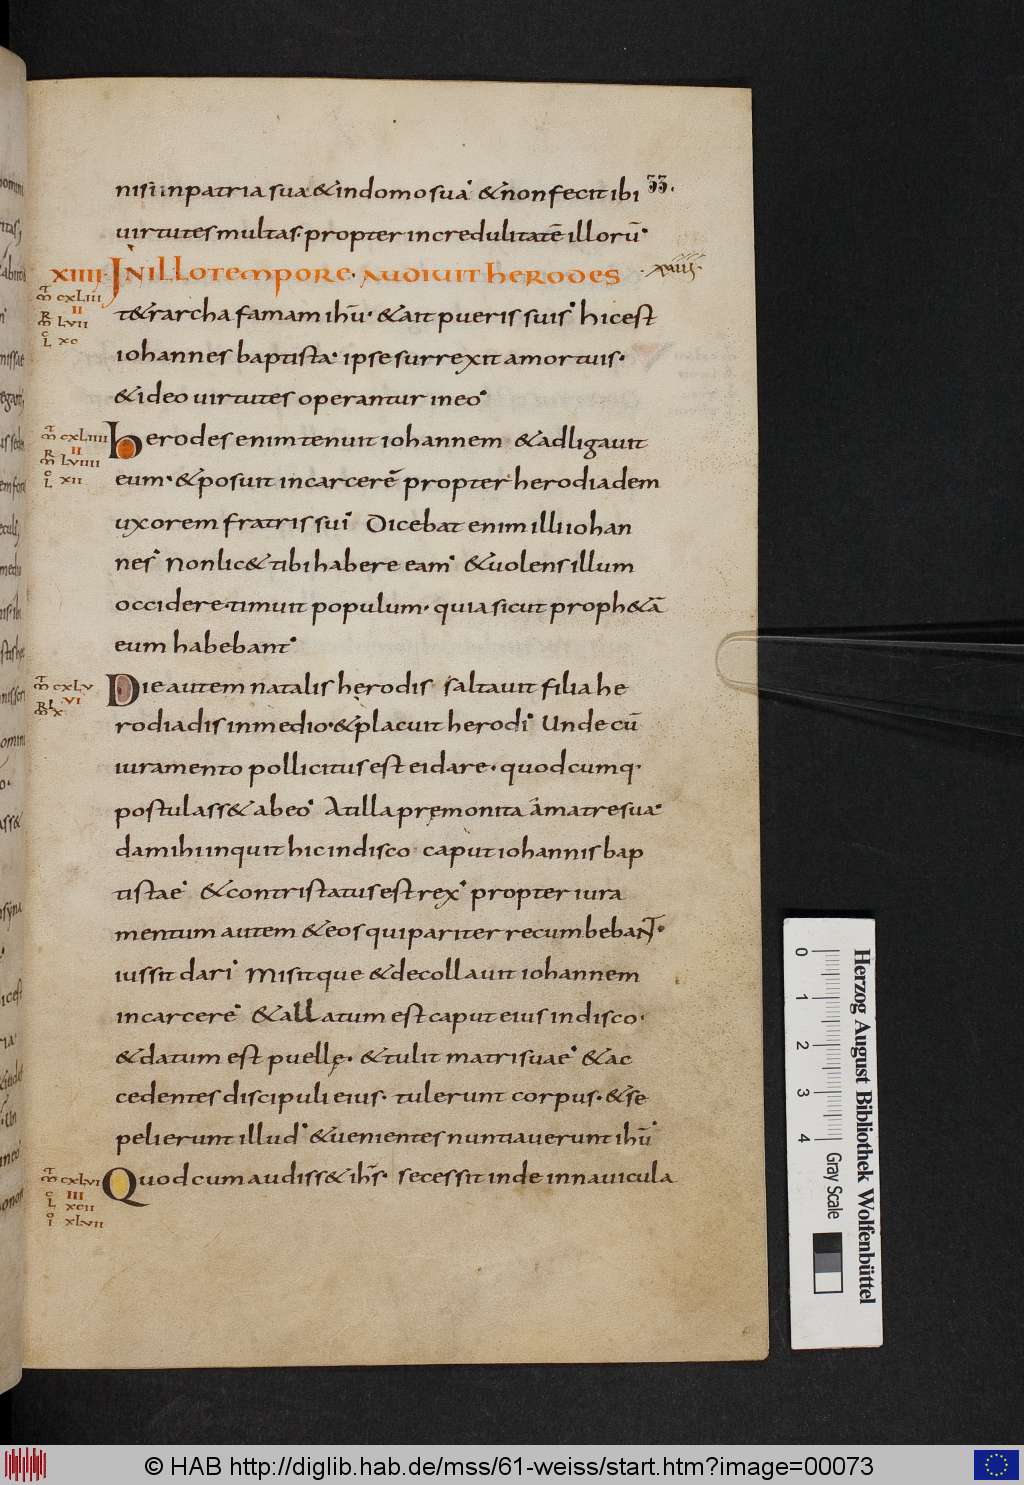 33.
nisi inpatria sua &indomosua· &nonfecit ibi
uirtutes multas· propter incredulitatē illorū·
xiiii· Jnillotempore· Audiuit herodes
xiiii·
t&rarcha famam ihū· &ait pueris suis· hicest
iohannes baptista· ipse surrexit amortuis·
&ideo uirtutes operantur ineo·
m̄ cxliii
ii
mr lvii
l xc
herodes enim tenuit iohannem &adligauit
eum· &posuit incarcerē propter herodiadem
uxorem fratris sui· Dicebat enim illi iohan
nes· Nonlic& tibi habere eam· &uolens illum
occidere· timuit populum· quia sicut proph&ā
eum habebant·
m̄ cxliiii
ii
mr lviiii
l xii
Die autem natalis herodis saltauit filia he
rodiadis inmedio· &placuit herodi· Unde cū
iuramento pollicitus est ei dare· quodcumq·
postulass& abeo· Atilla pręmonita ámatresua·
damihi inquit hic indisco caput iohannis bap
tistae· &contristatus est rex· propter iura
mentum autem &eos qui pariter recumbebant·
iussit dari· Misitque &decollauit iohannem
incarcere· &allatum est caput eius indisco·
&datum est puellę· &tulit matri suae· &ac
cedentes discipuli eius· tulerunt corpus· &se
pelierunt illud· &uenientes nuntiauerunt ihū·
m̄ cxlv
vi
Quod cum audiss& ihs̄· secessit inde innauicula
m̄ cxlvi
iii
l xcii
io xlvii
Herzog August Bibliothek Wolfenbüttel
0 1 2 3 4 Gray Scale
© HAB http://diglib.hab.de/mss/61-weiss/start.htm?image=00073